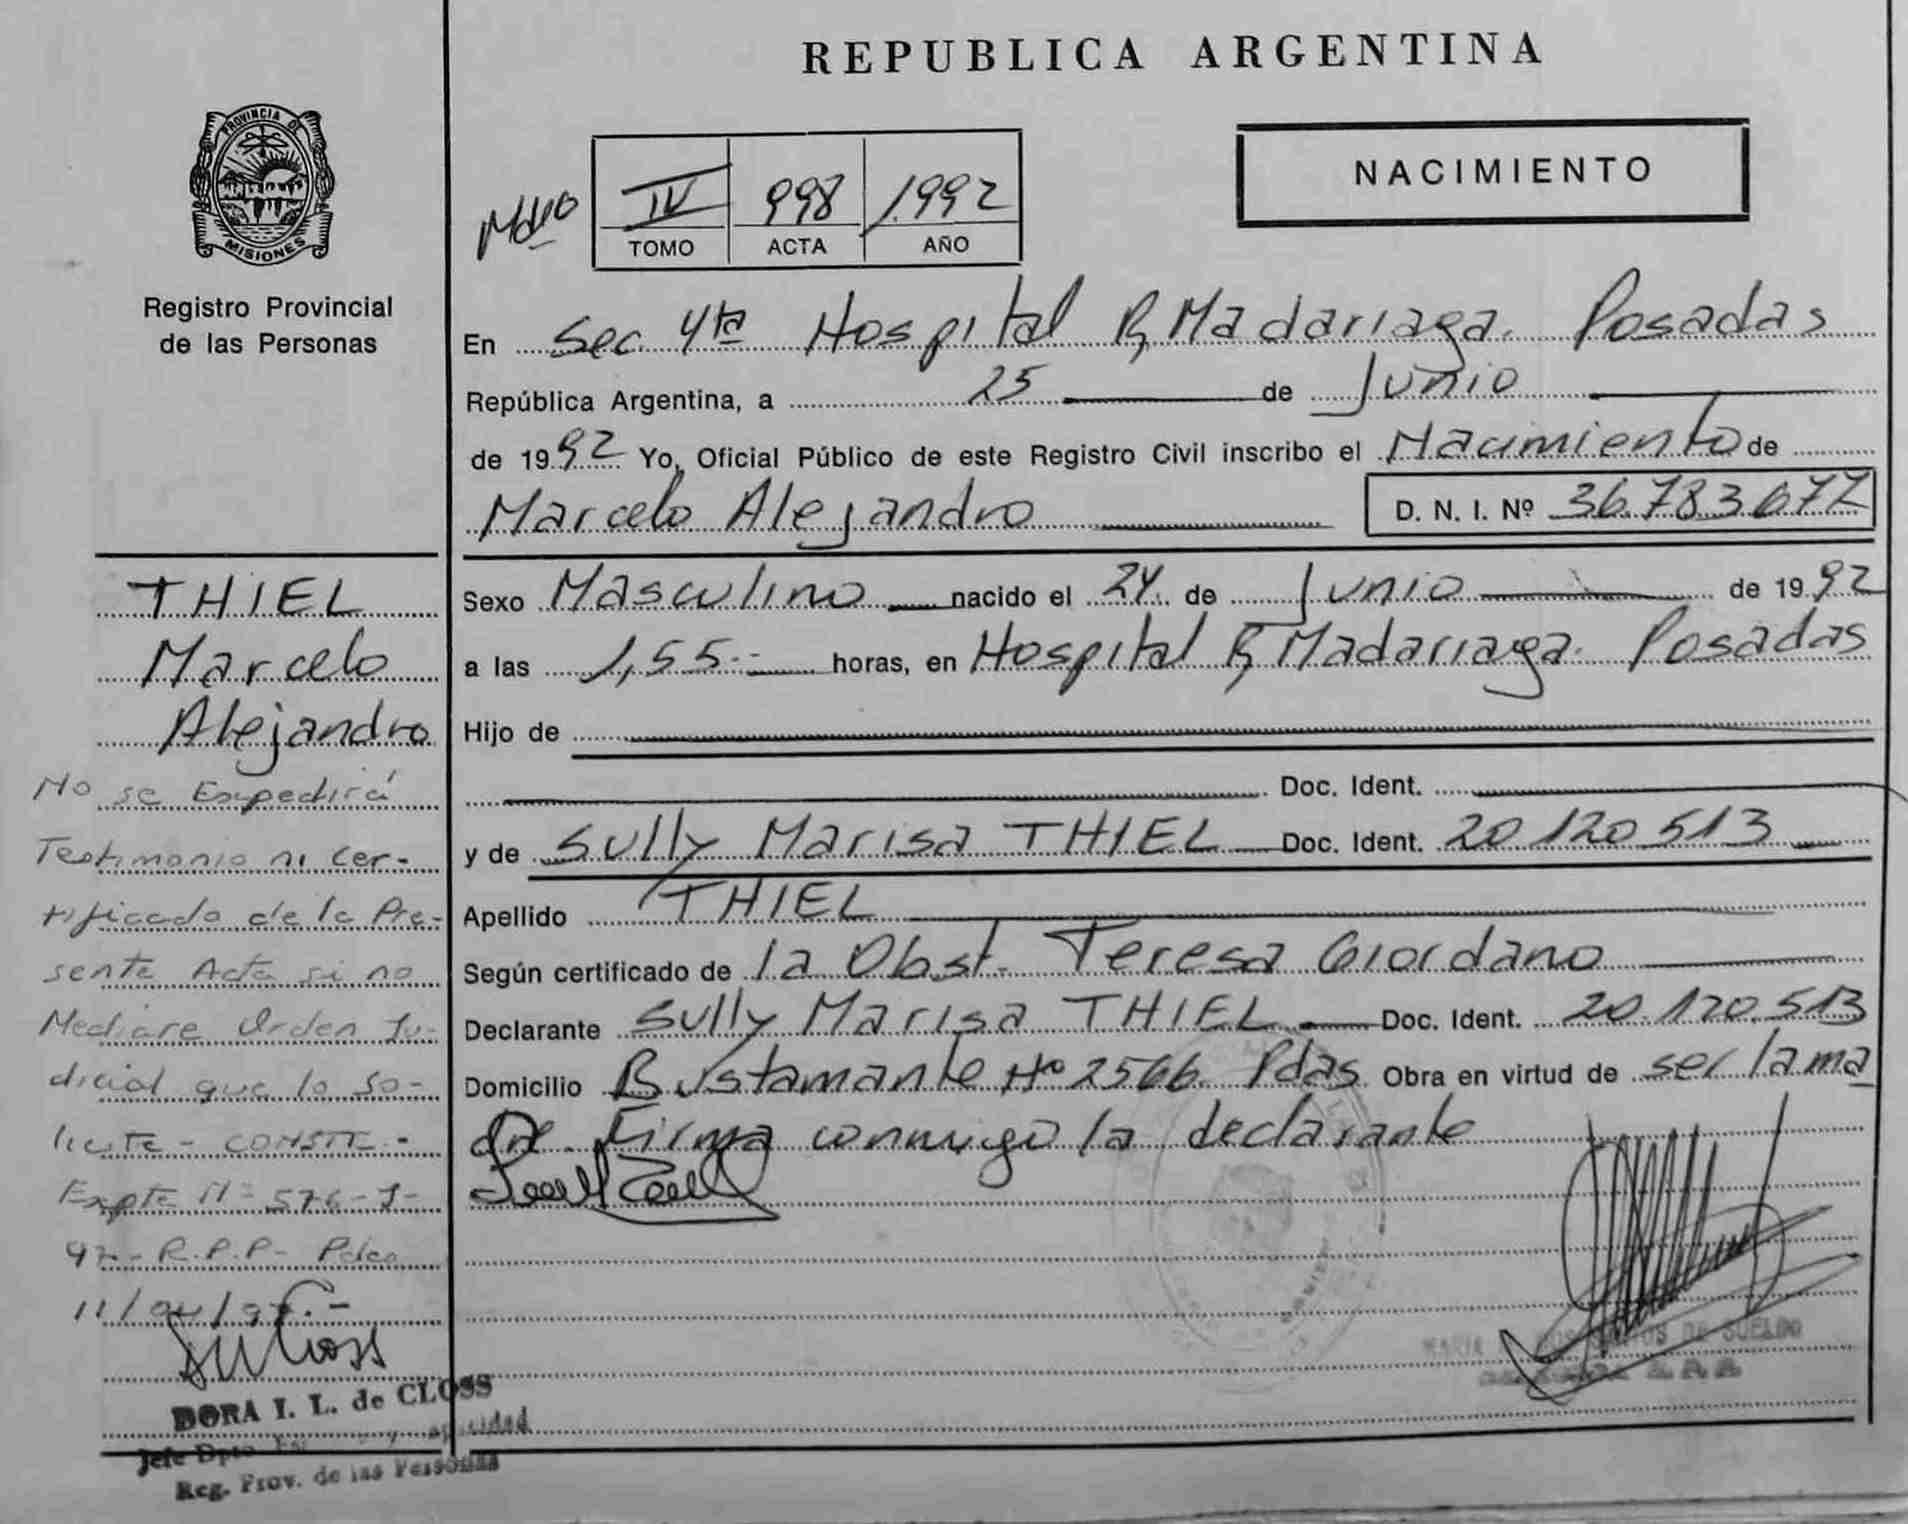 REPUBLICA ARGENTINA
PROVINCIA DE
MISIONES
Registro Provincial
de las Personas
NACIMIENTO
IV 998 1992
TOMO ACTA AÑO
En Sec. 4ta Hospital R. Madariaga. Posadas
República Argentina, a 25 de Junio
de 1992 Yo, Oficial Público de este Registro Civil inscribo el Nacimiento de
Marcelo Alejandro D. N. I. Nº 36.783.677
Sexo Masculino nacido el 24 de Junio de 1992
a las 1,55.- horas, en Hospital R. Madariaga. Posadas
Hijo de
Doc. Ident.
y de Sully Marisa THIEL Doc. Ident. 20.120.513
Apellido THIEL
Según certificado de la Obst. Teresa Giordano
Declarante Sully Marisa THIEL Doc. Ident. 20.120.513
Domicilio Bustamante Nº 2566. Pdas. Obra en virtud de ser la ma
dre. Firma conmigo la declarante
THIEL
Marcelo
Alejandro
No se Expedirá
Testimonio ni Cer-
tificado de la Pre-
sente Acta si no
Mediare Orden Ju-
dicial que lo so-
licite - CONSTE.-
Expte Nº 576-J-
97- R.P.P-
DORA I. L. de CLOSS
Jefe Dpto.
Reg. Prov. de las Personas
MARIA DE SUELDO